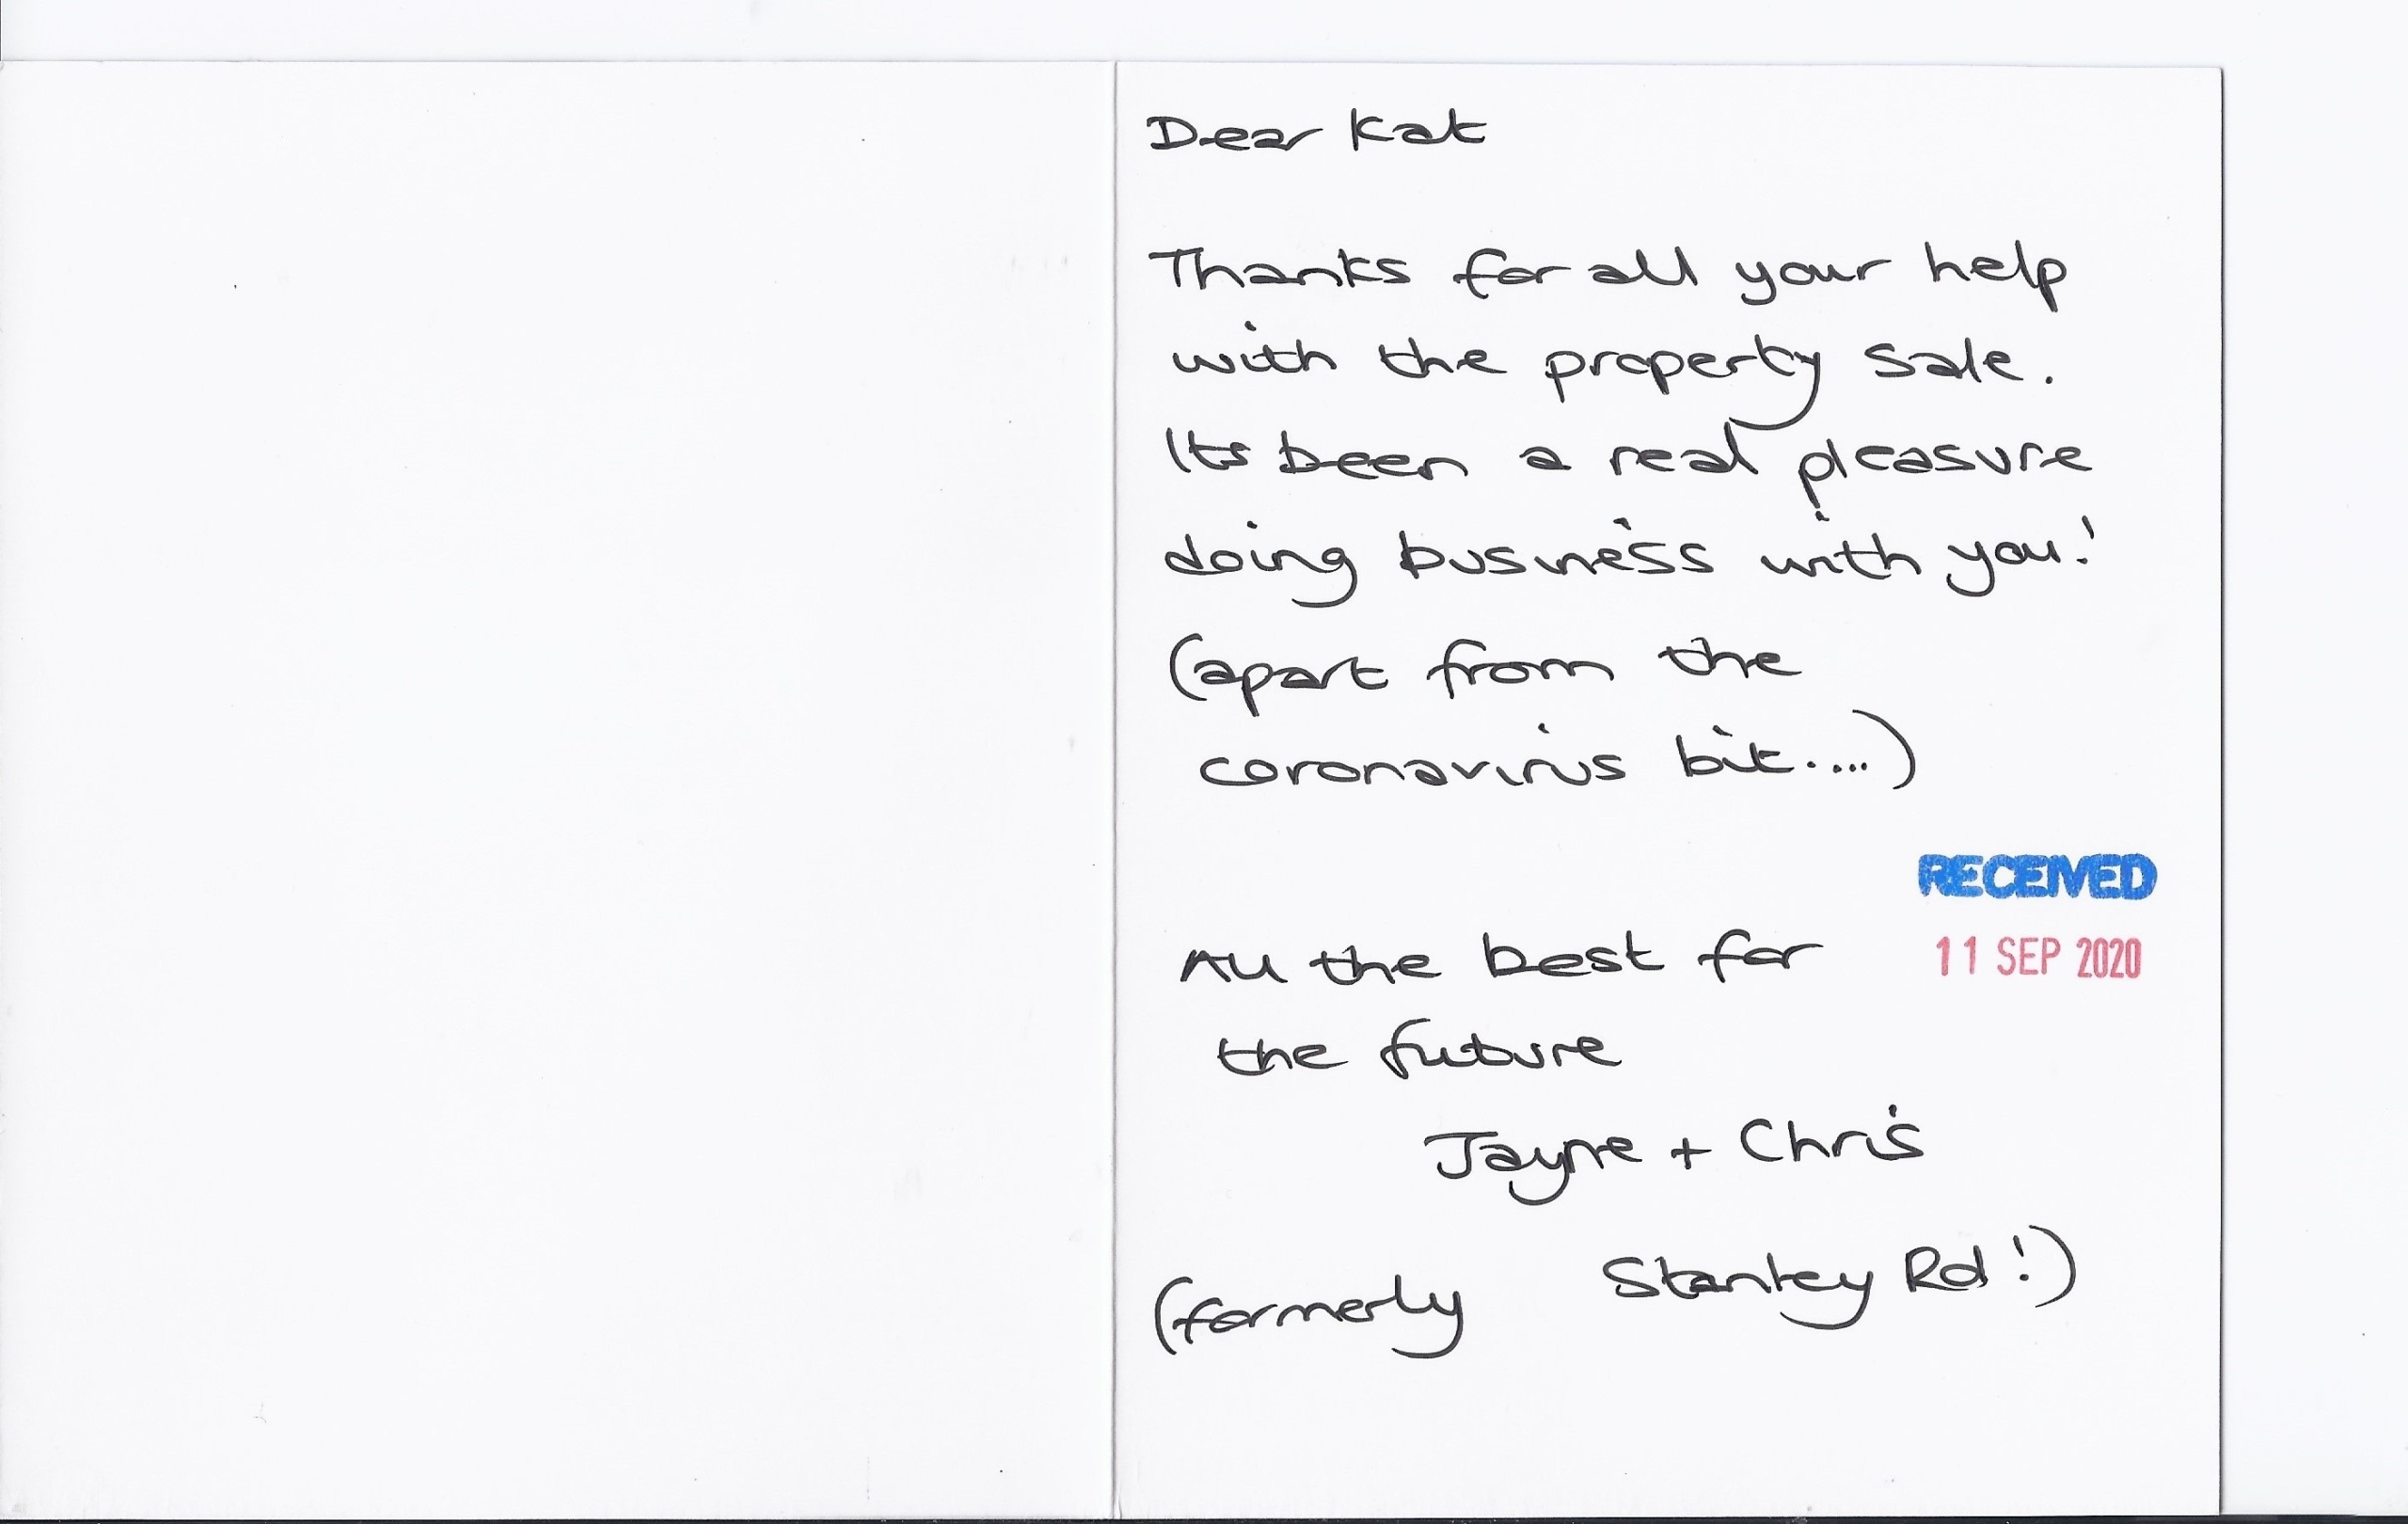 Dear Kat
Thanks for all your help
with the property sale.
Its been a real pleasure
doing business with you!
(apart from the
coronavirus bit.....)
RECEIVED
11 SEP 2020
All the best for
the future
Jayne + Chris
(formerly Stanley Rd!)